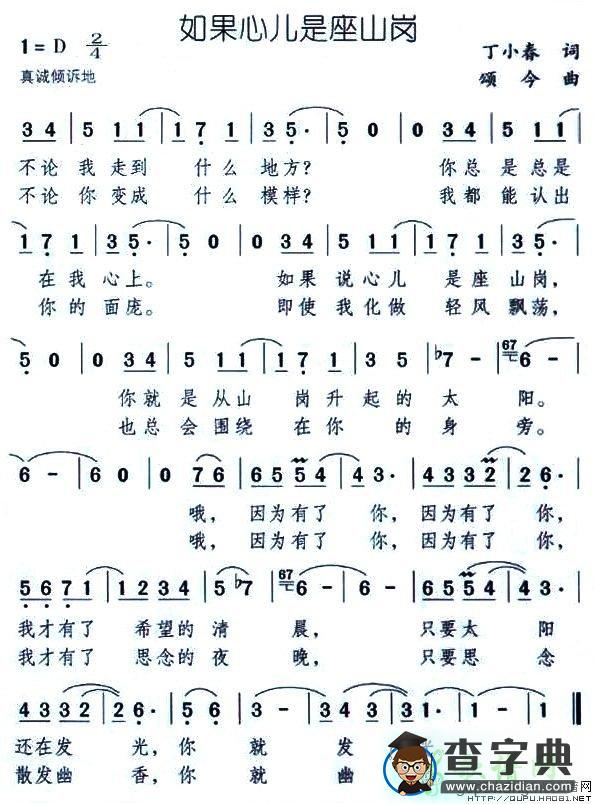 如果心儿是座山岗
1=D 2/4
丁小春 词
真诚倾诉地
颂今 曲
3 4 | 5 1 1 | 1 7 1 | 3 5· | 5 0 | 0 3 4 | 5 1 1 |
不论 我走到 什么地方? 你总是总是
不论 你变成 什么模样? 我都能认出
1 7 1 | 3 5· | 5 0 | 0 3 4 | 5 1 1 | 1 7 1 | 3 5· |
在我心上。 如果 说心儿 是座山岗,
你的面庞。 即使 我化做 轻风飘荡,
5 0 | 0 3 4 | 5 1 1 | 1 7 1 | 3 5 | ♭7 - | 67 6 - |
你就是从山 岗升起的太 阳。
也总会围绕 在你的身 旁。
6 - | 6 0 | 0 7 6 | 6 5 5 4 | 4 3· | 4 3 3 2 | 2 6· |
哦, 因为有了你, 因为有了你,
哦, 因为有了你, 因为有了你,
5 6 7 1 | 1 2 3 4 | 5 ♭7 | 67 6 - | 6 - | 6 5 5 4 |
我才有了 希望的清 晨, 只要太阳
我才有了 思念的夜 晚, 只要思念
4 3 3 2 | 2 6· | 5 6· | 3 4 | 3 4 3 1 | 1 - | 1 ‖
还在发光, 你就发
散发幽香, 你就
查字典
www.chazidian.com
HTTP://QUPU.HAO81.NET